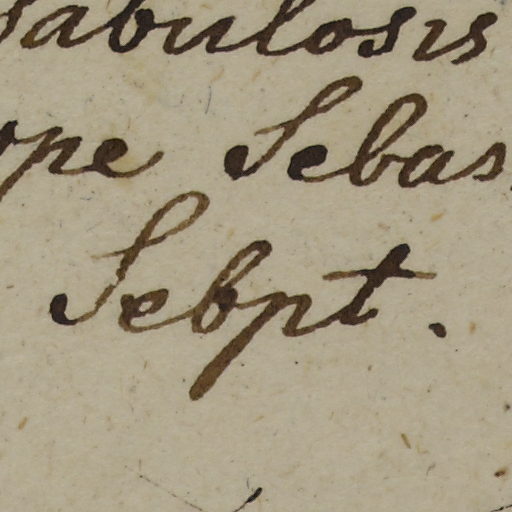 sabulosis
ope Sebas
Sebpt.